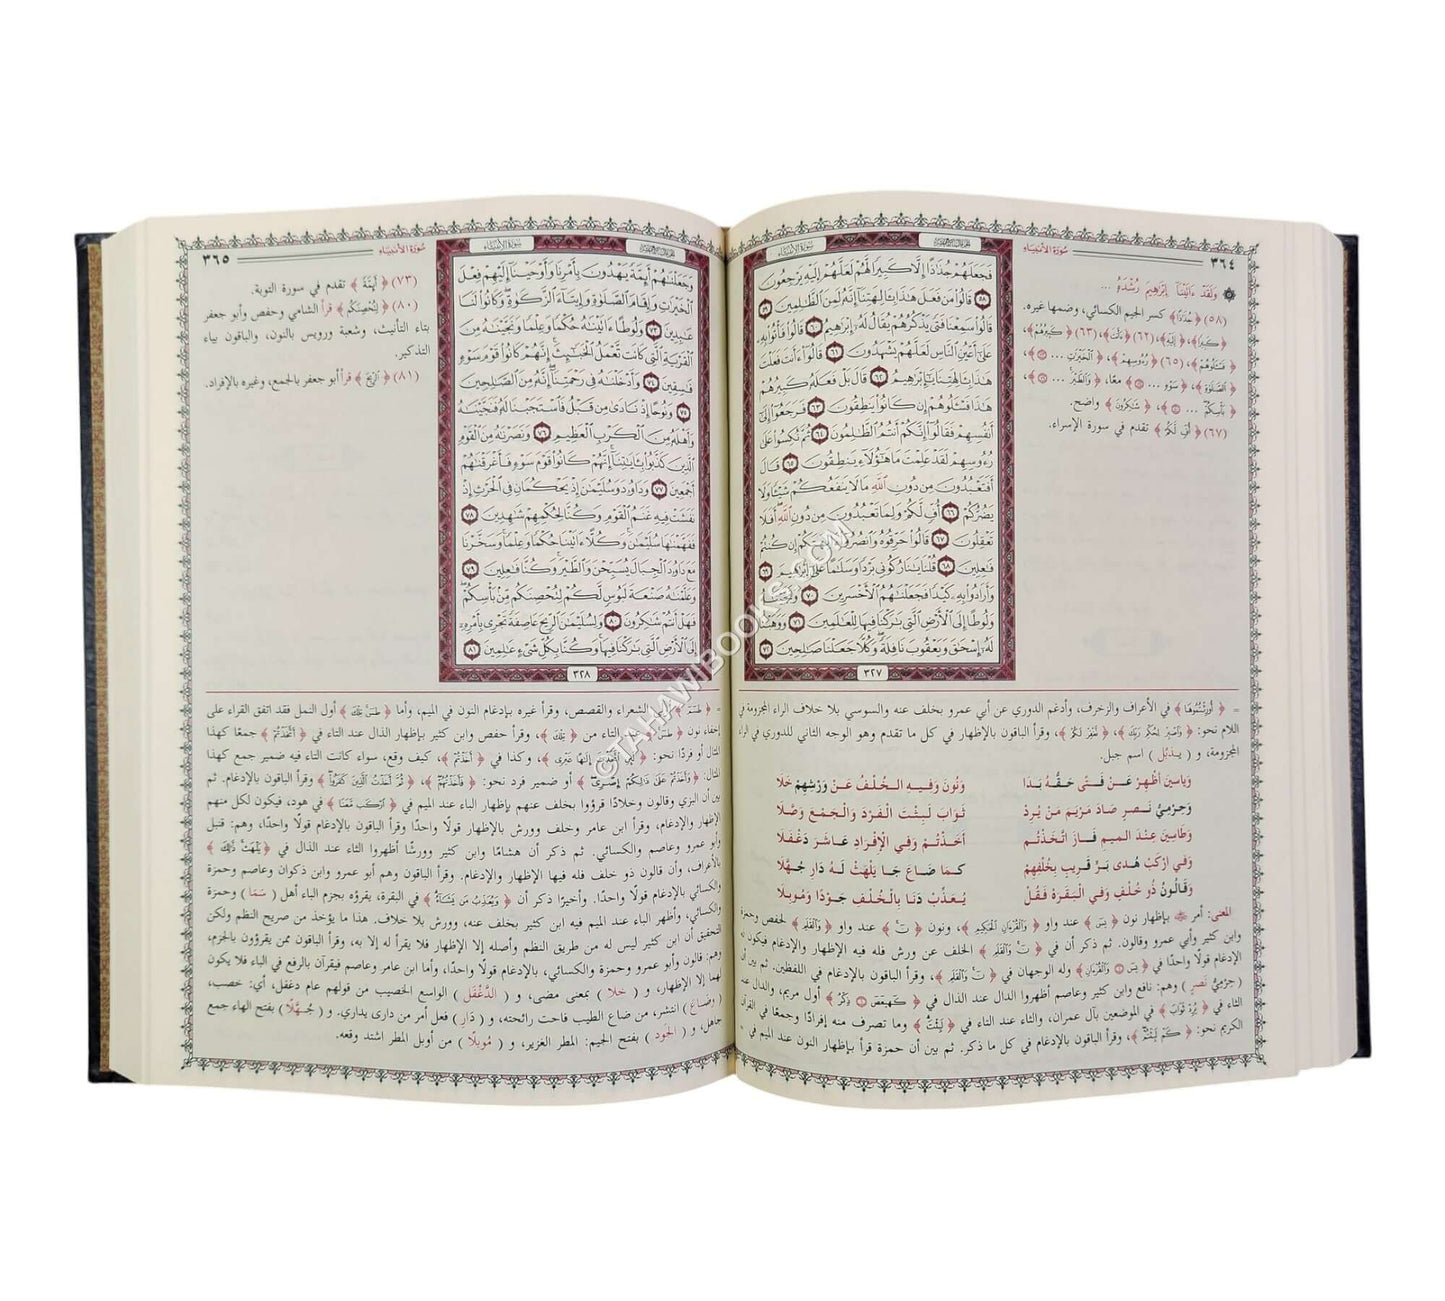 ٣٦٤
سُورَةُ الأنبيَاء
سُورَةُ الأَنبِيَاء
۞ وَلَقَدْ ءَاتَيْنَآ إِبْرَٰهِيمَ رُشْدَهُۥ ...
(٥٨) ﴿ جُذَٰذًا ﴾ كسر الجيم الكسائي، وضمها غيره.
﴿ كَبِيرًا ﴾، ﴿ إِلَيْهِ ﴾، (٦٢) ﴿ ءَأَنتَ ﴾، (٦٣) ﴿ كَبِيرُهُمْ ﴾،
﴿ فَسْـَٔلُوهُمْ ﴾، (٦٥) ﴿ رُءُوسِهِمْ ﴾، ﴿ ٱلْخَيْرَٰتِ ...
﴿ ٱلصَّلَوٰةِ ﴾، ﴿ سَوْءٍ ... ﴾ معًا، ﴿ وَٱلطَّيْرَ ...
﴿ بَأْسِكُمْ ... ﴾، ﴿ شَٰكِرُونَ ﴾ واضح.
(٦٧) ﴿ أُفٍّ لَّكُمْ ﴾ تقدم في سورة الإسراء.
فَجَعَلَهُمْ جُذَٰذًا إِلَّا كَبِيرًا لَّهُمْ لَعَلَّهُمْ إِلَيْهِ يَرْجِعُونَ
٥٨ قَالُوا۟ مَن فَعَلَ هَٰذَا بِـَٔالِهَتِنَآ إِنَّهُۥ لَمِنَ ٱلظَّٰلِمِينَ ٥٩
قَالُوا۟ سَمِعْنَا فَتًى يَذْكُرُهُمْ يُقَالُ لَهُۥٓ إِبْرَٰهِيمُ ٦٠ قَالُوا۟ فَأْتُوا۟ بِهِۦ
عَلَىٰٓ أَعْيُنِ ٱلنَّاسِ لَعَلَّهُمْ يَشْهَدُونَ ٦١ قَالُوٓا۟ ءَأَنتَ فَعَلْتَ
هَٰذَا بِـَٔالِهَتِنَا يَٰٓإِبْرَٰهِيمُ ٦٢ قَالَ بَلْ فَعَلَهُۥ كَبِيرُهُمْ
هَٰذَا فَسْـَٔلُوهُمْ إِن كَانُوا۟ يَنطِقُونَ ٦٣ فَرَجَعُوٓا۟ إِلَىٰٓ
أَنفُسِهِمْ فَقَالُوٓا۟ إِنَّكُمْ أَنتُمُ ٱلظَّٰلِمُونَ ٦٤ ثُمَّ نُكِسُوا۟ عَلَىٰ
رُءُوسِهِمْ لَقَدْ عَلِمْتَ مَا هَٰٓؤُلَآءِ يَنطِقُونَ ٦٥ قَالَ
أَفَتَعْبُدُونَ مِن دُونِ ٱللَّهِ مَا لَا يَنفَعُكُمْ شَيْـًٔا وَلَا
يَضُرُّكُمْ ٦٦ أُفٍّ لَّكُمْ وَلِمَا تَعْبُدُونَ مِن دُونِ ٱللَّهِ أَفَلَا
تَعْقِلُونَ ٦٧ قَالُوا۟ حَرِّقُوهُ وَٱنصُرُوٓا۟ ءَالِهَتَكُمْ إِن كُنتُمْ
فَٰعِلِينَ ٦٨ قُلْنَا يَٰنَارُ كُونِى بَرْدًا وَسَلَٰمًا عَلَىٰٓ إِبْرَٰهِيمَ ٦٩
وَأَرَادُوا۟ بِهِۦ كَيْدًا فَجَعَلْنَٰهُمُ ٱلْأَخْسَرِينَ ٧٠ وَنَجَّيْنَٰهُ
وَلُوطًا إِلَى ٱلْأَرْضِ ٱلَّتِى بَٰرَكْنَا فِيهَا لِلْعَٰلَمِينَ ٧١ وَوَهَبْنَا
لَهُۥٓ إِسْحَٰقَ وَيَعْقُوبَ نَافِلَةً وَكُلًّا جَعَلْنَا صَٰلِحِينَ ٧٢
٣٢٧
= ﴿ أُورِثْتُمُوهَا ﴾ في الأعراف والزخرف، وأدغم الدوري عن أبي عمرو بخلف عنه والسوسي بلا خلاف الراء المجزومة في
اللام نحو: ﴿ وَٱصْبِرْ لِحُكْمِ رَبِّكَ ﴾، ﴿ نَغْفِرْ لَكُمْ ﴾، وقرأ الباقون بالإظهار في كل ما تقدم وهو الوجه الثاني للدوري في الراء
المجزومة، و ( يـذبُل ) اسم جبل.
وَيَاسِينَ أَظْهِرْ عَنْ فَـتًى حَقُّـهُ بَـدَا وَنُونَ وَفِيهِ الـخُلْفُ عَنْ وَرْشِهِمْ خَلَا
وَحِرْمِيُّ نَـصْرٍ صَادَ مَرْيَمَ مَنْ يُرِدْ ثَوَابَ لَبِثْتَ الْفَرْدَ وَالْـجَمْعَ وَصَّلَا
وَطَاسِينَ عِنْدَ الميمِ فَـازَ اتَّـخَذْتُـمُ أَخَذْتُـمْ وَفِي الْإِفْـرَادِ عَاشَـرَ دَغْـفَلَا
وَفِي ارْكَبْ هُدَى بَـرٍّ قَـرِيبٍ بِخُلْفِهِمْ كَـمَا ضَـاعَ جَـا يَلْهَثْ لَـهُ دَارِ جُـهَّلَا
وَقَـالُونُ ذُو خُلْفٍ وَفِي الْبَقَرَهْ فَقُلْ يُـعَذِّبْ دَنَا بِالْخُلْفِ جَـوْدًا وَمُوبِلَا
المعنى: أمر بإظهار نون ﴿ يسٓ ﴾ عند واو ﴿ وَٱلْقُرْءَانِ ٱلْحَكِيمِ ﴾، ونون ﴿ نٓ ﴾ عند واو ﴿ وَٱلْقَلَمِ ﴾ لحفص وحمزة
وابن كثير وأبي عمرو وقالون. ثم ذكر أن في ﴿ نٓ وَٱلْقَلَمِ ﴾ الخلف عن ورش فله فيه الإظهار والإدغام فيكون له
الإدغام قولًا واحدًا في ﴿ يسٓ وَٱلْقُرْءَانِ ﴾ وله الوجهان في ﴿ نٓ وَٱلْقَلَمِ ﴾، وقرأ الباقون بالإدغام في اللفظين. ثم بين أن
( حِرْمِيُّ نَصْرٍ ) وهم: نافع وابن كثير وعاصم أظهروا الدال عند الذال في ﴿ كٓهيعٓصٓ ذِكْرُ ﴾ أول مريم، والدال عند
الثاء في ﴿ يُرِدْ ثَوَابَ ﴾ في الموضعين بآل عمران، والثاء عند التاء في ﴿ لَبِثْتُ ﴾ وما تصرف منه إفرادًا وجمعًا في القرآن
الكريم نحو: ﴿ كَمْ لَبِثْتُمْ ﴾، وقرأ الباقون بالإدغام في كل ما ذكر. ثم بين أن حمزة قرأ بإظهار النون عند الميم في =
٣٦٥
سُورَةُ الأنبيَاء
سُورَةُ الأَنبِيَاء
(٧٣) ﴿ أَئِمَّةً ﴾ تقدم في سورة التوبة.
(٨٠) ﴿ لِتُحْصِنَكُم ﴾ قرأ الشامي وحفص وأبو جعفر
بتاء التأنيث، وشعبة ورويس بالنون، والباقون بياء
التذكير.
(٨١) ﴿ ٱلرِّيحَ ﴾ قرأ أبو جعفر بالجمع، وغيره بالإفراد.
وَجَعَلْنَٰهُمْ أَئِمَّةً يَهْدُونَ بِأَمْرِنَا وَأَوْحَيْنَآ إِلَيْهِمْ فِعْلَ
ٱلْخَيْرَٰتِ وَإِقَامَ ٱلصَّلَوٰةِ وَإِيتَآءَ ٱلزَّكَوٰةِ وَكَانُوا۟ لَنَا
عَٰبِدِينَ ٧٣ وَلُوطًا ءَاتَيْنَٰهُ حُكْمًا وَعِلْمًا وَنَجَّيْنَٰهُ مِنَ
ٱلْقَرْيَةِ ٱلَّتِى كَانَت تَّعْمَلُ ٱلْخَبَٰٓئِثَ إِنَّهُمْ كَانُوا۟ قَوْمَ سَوْءٍ
فَٰسِقِينَ ٧٤ وَأَدْخَلْنَٰهُ فِى رَحْمَتِنَآ إِنَّهُۥ مِنَ ٱلصَّٰلِحِينَ
٧٥ وَنُوحًا إِذْ نَادَىٰ مِن قَبْلُ فَٱسْتَجَبْنَا لَهُۥ فَنَجَّيْنَٰهُ
وَأَهْلَهُۥ مِنَ ٱلْكَرْبِ ٱلْعَظِيمِ ٧٦ وَنَصَرْنَٰهُ مِنَ ٱلْقَوْمِ
ٱلَّذِينَ كَذَّبُوا۟ بِـَٔايَٰتِنَآ إِنَّهُمْ كَانُوا۟ قَوْمَ سَوْءٍ فَأَغْرَقْنَٰهُمْ
أَجْمَعِينَ ٧٧ وَدَاوُۥدَ وَسُلَيْمَٰنَ إِذْ يَحْكُمَانِ فِى ٱلْحَرْثِ إِذْ
نَفَشَتْ فِيهِ غَنَمُ ٱلْقَوْمِ وَكُنَّا لِحُكْمِهِمْ شَٰهِدِينَ ٧٨
فَفَهَّمْنَٰهَا سُلَيْمَٰنَ وَكُلًّا ءَاتَيْنَا حُكْمًا وَعِلْمًا وَسَخَّرْنَا
مَعَ دَاوُۥدَ ٱلْجِبَالَ يُسَبِّحْنَ وَٱلطَّيْرَ وَكُنَّا فَٰعِلِينَ ٧٩
وَعَلَّمْنَٰهُ صَنْعَةَ لَبُوسٍ لَّكُمْ لِتُحْصِنَكُم مِّنۢ بَأْسِكُمْ
فَهَلْ أَنتُمْ شَٰكِرُونَ ٨٠ وَلِسُلَيْمَٰنَ ٱلرِّيحَ عَاصِفَةً تَجْرِى بِأَمْرِهِۦٓ
إِلَى ٱلْأَرْضِ ٱلَّتِى بَٰرَكْنَا فِيهَا وَكُنَّا بِكُلِّ شَىْءٍ عَٰلِمِينَ ٨١
٣٢٨
= ﴿ طسٓمٓ ﴾ الشعراء والقصص، وقرأ غيره بإدغام النون في الميم، وأما ﴿ طسٓ تِلْكَ ﴾ أول النمل فقد اتفق القراء على
إخفاء نون ﴿ طسٓ ﴾ التاء من ﴿ تِلْكَ ﴾، وقرأ حفص وابن كثير بإظهار الذال عند التاء في ﴿ ٱتَّخَذْتُمْ ﴾ جمعًا كهذا
المثال أو فردًا نحو: ﴿ ٱتَّخَذْتَ إِلَٰهًا غَيْرِى ﴾، وكذا في ﴿ أَخَذْتُمْ ﴾، كيف وقع، سواء كانت التاء فيه ضمير جمع كهذا
المثال: ﴿ وَأَخَذْتُمْ عَلَىٰ ذَٰلِكُمْ إِصْرِى ﴾ أو ضمير فرد نحو: ﴿ فَأَخَذْتُهُمْ ﴾، ﴿ ثُمَّ أَخَذْتُ ٱلَّذِينَ كَفَرُوا۟ ﴾ وقرأ الباقون بالإدغام. ثم
بين أن البزي وقالون وخلادًا قرؤوا بخلف عنهم بإظهار الباء عند الميم في ﴿ ٱرْكَب مَّعَنَا ﴾ في هود، فيكون لكل منهم
الإظهار والإدغام، وقرأ ابن عامر وخلف وورش بالإظهار قولًا واحدًا وقرأ الباقون بالإدغام قولًا واحدًا، وهم: قنبل
وأبو عمرو وعاصم والكسائي. ثم ذكر أن هشامًا وابن كثير وورشًا أظهروا الثاء عند الذال في ﴿ يَلْهَثْ ذَٰلِكَ ﴾
بالأعراف، وأن قالون ذو خلف فله فيها الإظهار والإدغام. وقرأ الباقون وهم أبو عمرو وابن ذكوان وعاصم وحمزة
والكسائي بالإدغام قولًا واحدًا. وأخيرًا ذكر أن ﴿ وَيُعَذِّبُ مَن يَشَآءُ ﴾ في البقرة، يقرؤه بجزم الباء أهل ( سَمَا ) وحمزة
والكسائي، وأظهر الباء عند الميم فيه ابن كثير بخلف عنه، وورش بلا خلاف. هذا ما يؤخذ من صريح النظم ولكن
التحقيق أن ابن كثير ليس له من طريق النظم وأصله إلا الإظهار فلا يقرأ له إلا به، وقرأ الباقون ممن يقرؤون بالجزم،
وهم: قالون وأبو عمرو وحمزة والكسائي، بالإدغام قولًا واحدًا، وأما ابن عامر وعاصم فيقرآن بالرفع في الباء فلا يكون
لهما إلا الإظهار، و ( خلا ) بمعنى مضى، و ( الدَّغْفَل ) الواسع الخصيب من قولهم عام دغفل، أي: خصب،
( وضاع ) انتشر، من ضاع الطيب فاحت رائحته، و ( دَارِ ) فعل أمر من دارى يداري، و ( جُـهَّلَا ) بفتح الهاء جمع
جاهل، و ( الجَود ) بفتح الجيم: المطر الغزير، و ( مُوبِلًا ) من أوبل المطر اشتد وقعه.
© TAHAWIBOOKS.COM